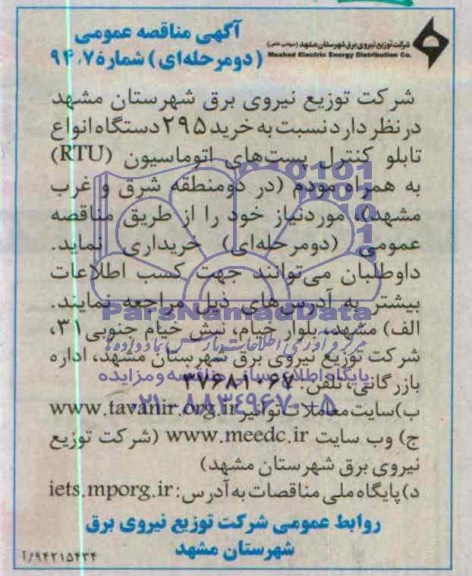 آگهی مناقصه عمومی
(دومرحله‌ای) شمارهٔ ۹۴،۷
شرکت توزیع نیروی برق شهرستان مشهد (سهامی خاص)
Mashhad Electric Energy Distribution Co.
شرکت توزیع نیروی برق شهرستان مشهد
در نظر دارد نسبت به خرید ۲۹۵ دستگاه انواع
تابلو کنترل پست‌های اتوماسیون (RTU)
به همراه مودم (در دومنطقه شرق و غرب
مشهد)، موردنیاز خود را از طریق مناقصه
عمومی (دومرحله‌ای) خریداری نماید.
داوطلبان می‌توانند جهت کسب اطلاعات
بیشتر به آدرس‌های ذیل مراجعه نمایند.
الف) مشهد، بلوار خیام، نبش خیام جنوبی ۳۱،
شرکت توزیع نیروی برق شهرستان مشهد، اداره
بازرگانی، تلفن: ۳۷۶۸۱۰۶۷
ب) سایت معاملات توانیر www.tavanir.org.ir
ج) وب سایت www.meedc.ir (شرکت توزیع
نیروی برق شهرستان مشهد)
د) پایگاه ملی مناقصات به آدرس: iets.mporg.ir
روابط عمومی شرکت توزیع نیروی برق
شهرستان مشهد
۹۴۲۱۵۴۳۴/آ
ParsNamadData
پایگاه اطلاع رسانی مناقصه و مزایده
۰۲۱-۸۸۳۴۹۶۷۰-۵